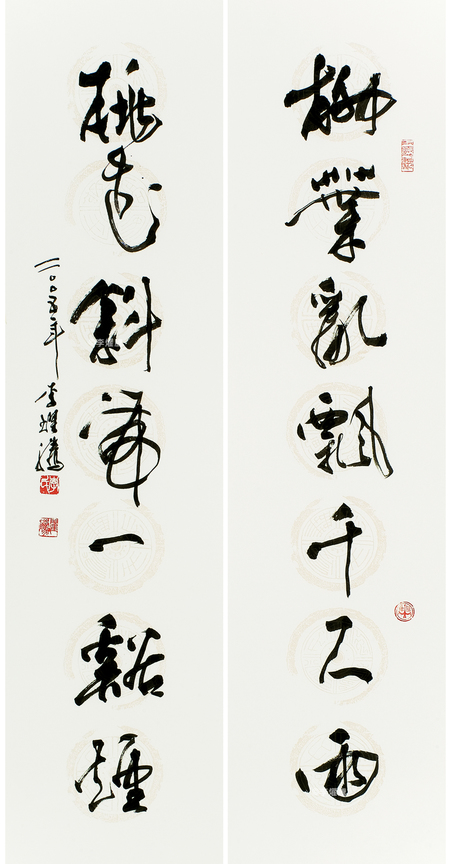 柳葉亂飄千尺雨
桃花斜帶一谿煙
二〇〇五年 李